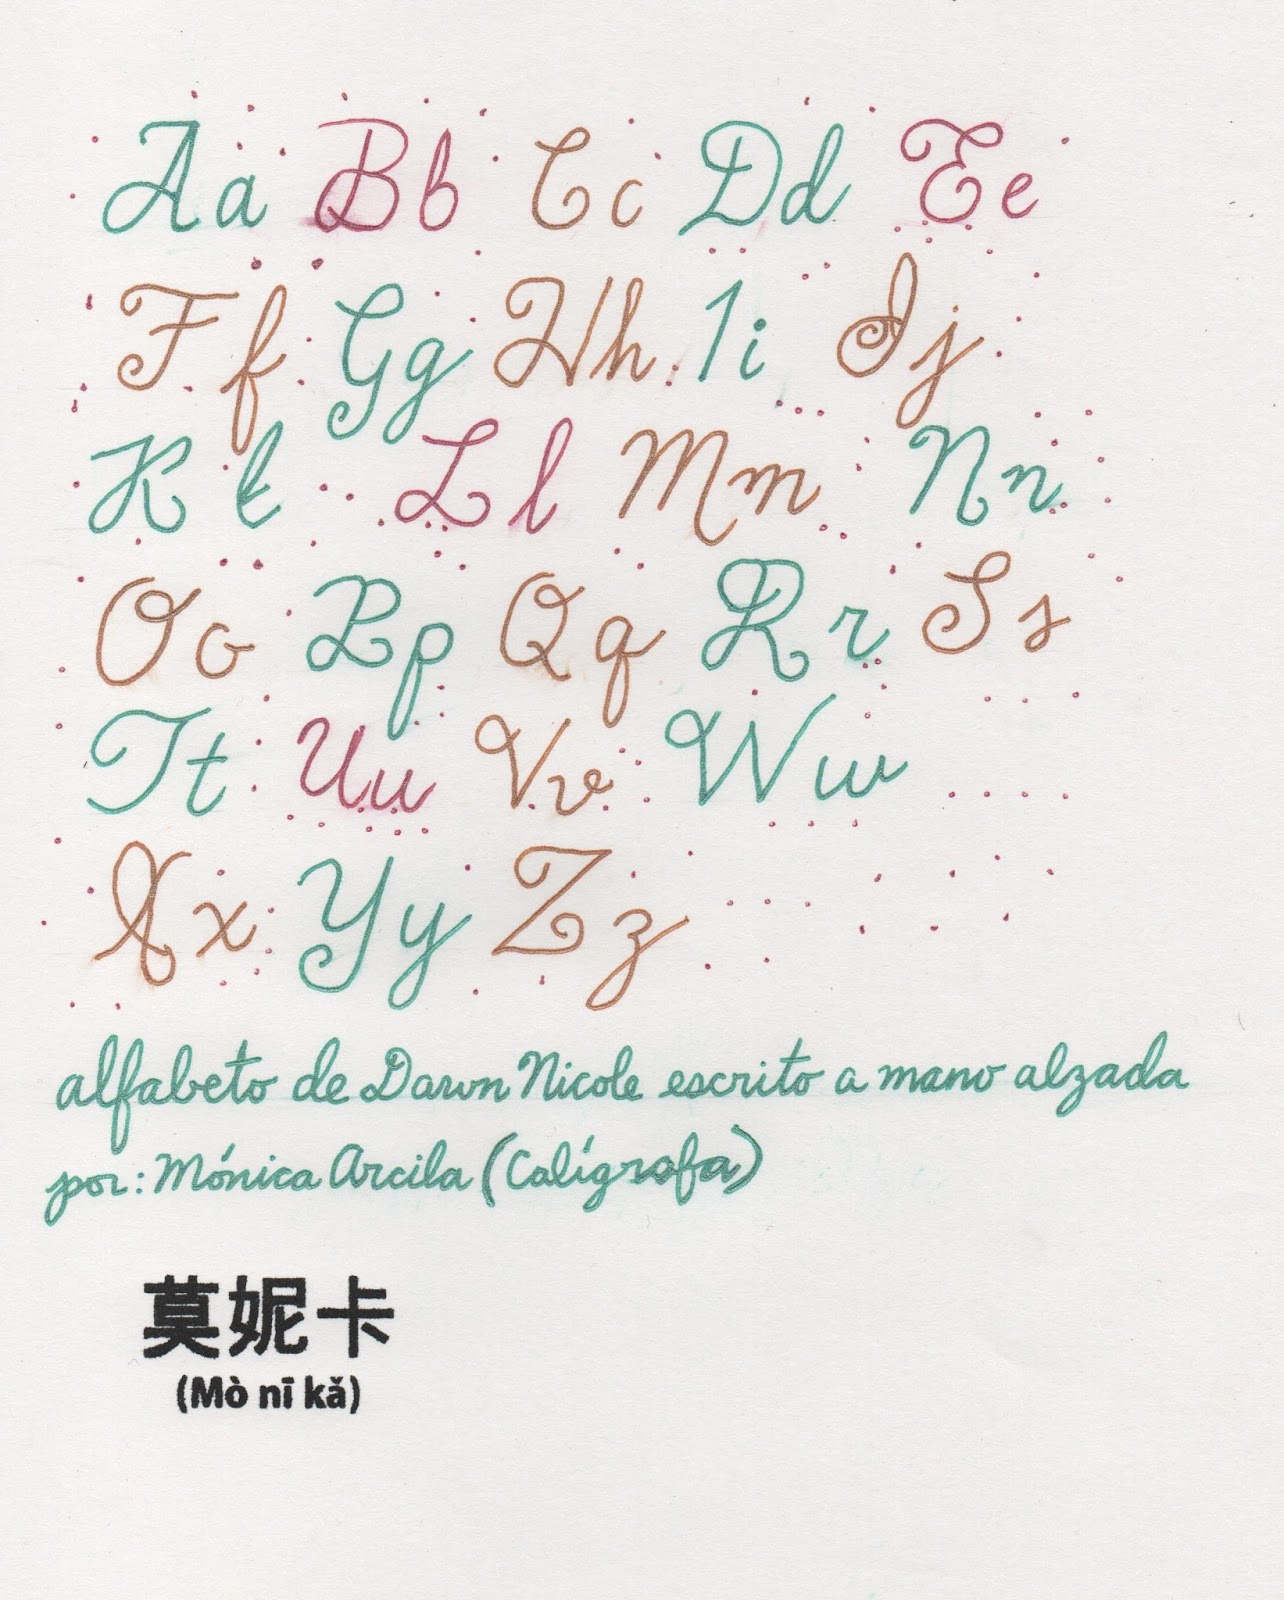 Aa Bb Cc Dd Ee
Ff Gg Hh Ii Jj
Kk Ll Mm Nn
Oo Pp Qq Rr Ss
Tt Uu Vv Ww
Xx Yy Zz
alfabeto de Dawn Nicole escrito a mano alzada
por: Mónica Arcila (Calígrafa)
莫妮卡
(Mò nī kǎ)